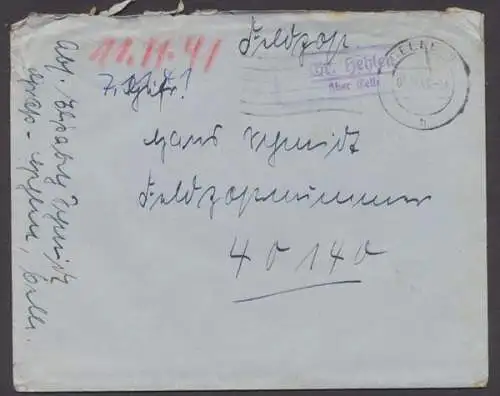 Feldpost.
11.11.41
Gr. Hehlen
über Celle
CELLE
Hans Schmidt
Feldpostnummer
40140
Abs. Elisabeth Schmidt
Groß-Hehlen, Celle.